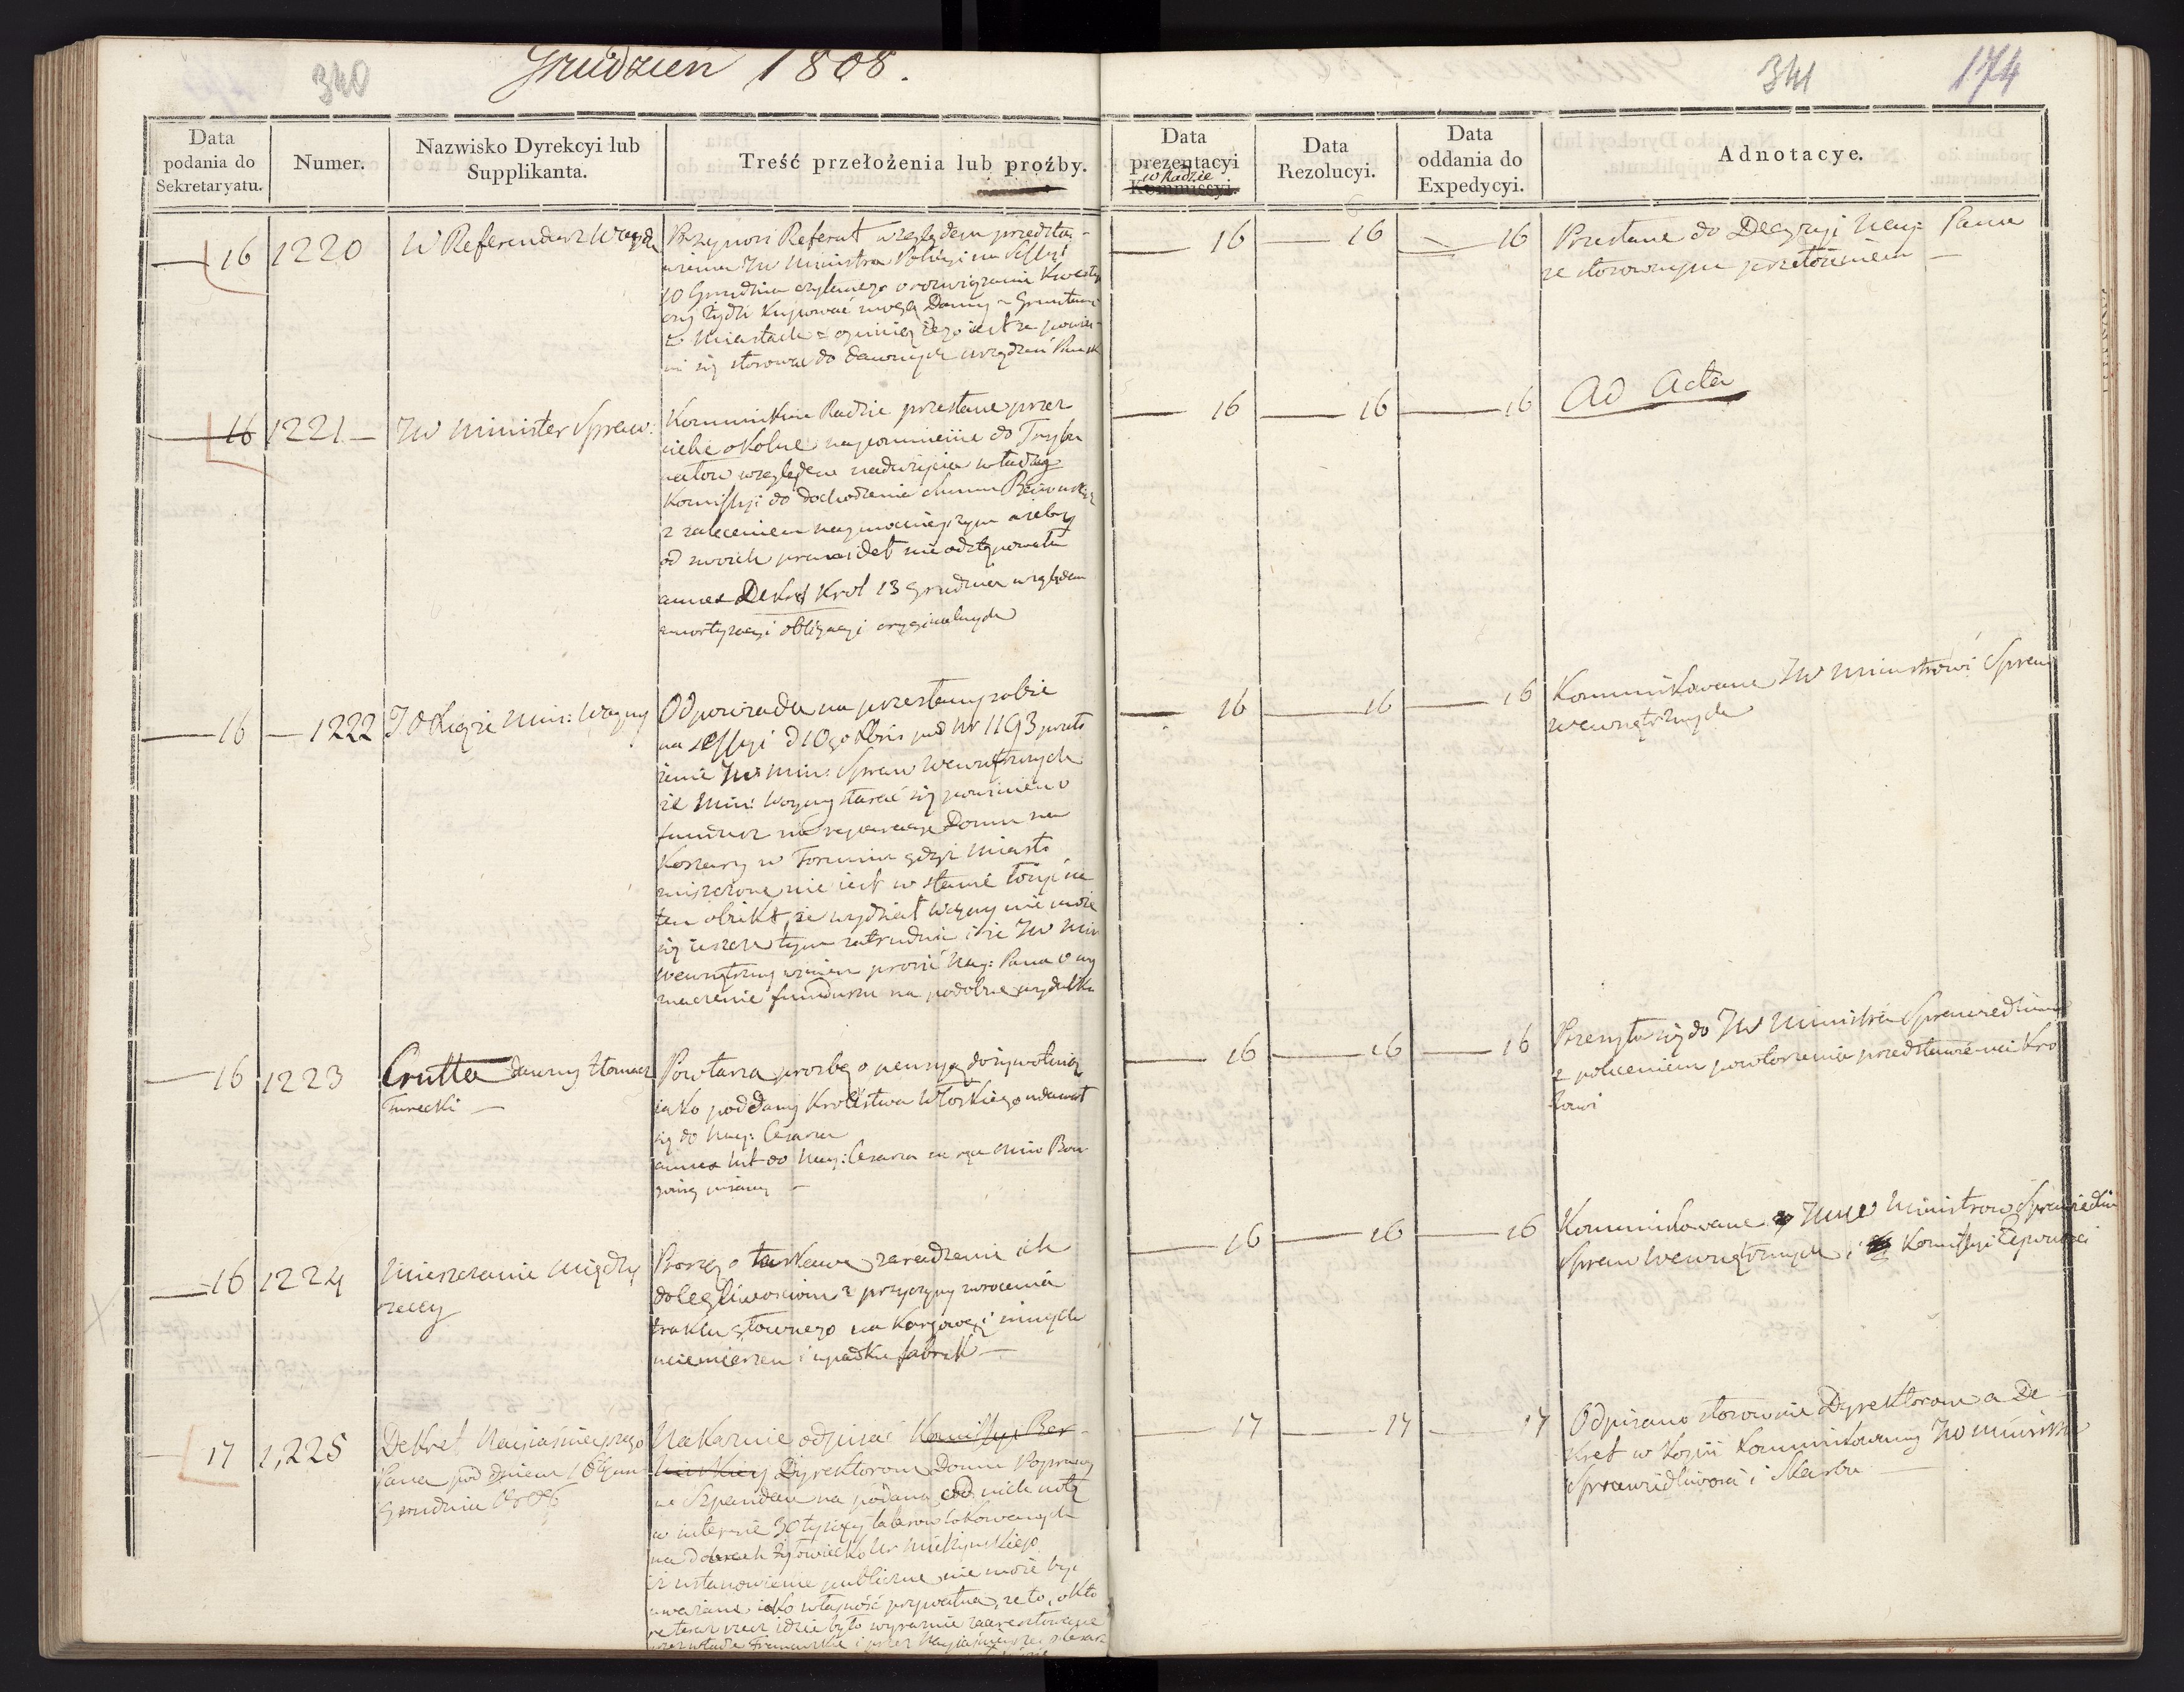 340
Grudzień 1808.
341
174
Data podania do Sekretaryatu.
Numer.
Nazwisko Dyrekcyi lub Supplikanta.
Treść przełożenia lub proźby.
Data prezentacyi w Radzie Kommissyi.
Data Rezolucyi.
Data oddania do Expedycyi.
Adnotacye.
16 1220 W Referendarz
Przynosi Referat względem przedsta-
wienia JW Ministra Policyi na Sessyi
10 Grudnia czytanego o rozwiązanie Kwestyi
czy Żydzi kupować mogą Domy z Gruntami
w Miastach
się stosować do dawnych urządzeń
16 16 16
Przesłane do Decyzyi Nayj: Pana
ze stosownym przełożeniem
16 1221 JW Minister Spraw:
Kommunikuie Radzie przesłane przez
siebie okolne napomnienie do Trybu
nałow względem nadużycia władzy
Komissyi do dochodzenia
z zaleceniem naymocnieyszym ażeby
od swoich prawideł nie odstępowała
annex Dekret Krol 13 Grudnia względem
amortyzacyi obligacyi oryginalnych
16 16 16
Ad Acta
16 1222 JO Xiąże Min: Woyny
Odpowiada na przesłany sobie
na Sessyi d 10go Xbris pod Nr 1193 przeło
żenie JW Min: Spraw Wewnętrznych
że Min: Woyny starać się powinien o
fundusz na reparacyą Domu na
Koszary w Toruniu gdyż Miasto
zniszczone nie iest w stanie łożyć na
ten obiekt, że wydział Woyny nie może
się ieszcze tym zatrudnić i że JW Min
Wewnętrzny winien prosić Nayj: Pana o wy
znaczenie funduszu na podobne wydatki
16 16 16
Kommunikowane JW Ministrowi Spraw
Wewnętrznych
16 1223 Crutta dawny tłomacz
Turecki
Powtarza prozbę o pensyą dożywotnią
iako poddany Krolestwa Włoskiego udawał
się do Nayj: Cesarza
annex list do Nayj: Cesarza na ręce
pisany
16 16 16
Przesyła się do JW Ministra Sprawiedliwo
z poleceniem powtorzenia przedstawienia Kro
lowi
16 1224 Mieszczanie Między
rzeccy
Proszą o łaskawe zaradzenie ich
dolegliwościom z przyczyny zwrocenia
traktu głownego na Kargowę i innych
uciemiężeń i upadku fabryk
16 16 16
Kommunikowane JWW Ministrow Sprawiedliw
Spraw Wewnętrznych i Komissyi
17 1,225 Dekret Nayiaśnieyszego
Pana pod dniem
Grudnia
Nakazuie odpisać Komissyi Ber-
lińskiey Dyrektorom Domu Poprawy
w Szpandau na podaną od nich notę
w interesie 30 tysięcy talarow lokowanych
na dobrach
iż ustanowienie publiczne nie może być
uważane iako własność prywatna, że to, o kto
re teraz rzecz idzie było wyraznie zaaresztowane
przez władze Francuskie i przez Nayiaśnieyszego Cesarza
17 17 17
Odpisano stosownie Dyrektorom a De
kret w Kopii Kommunikowany JW Ministro
Sprawiedliwości i Skarbu